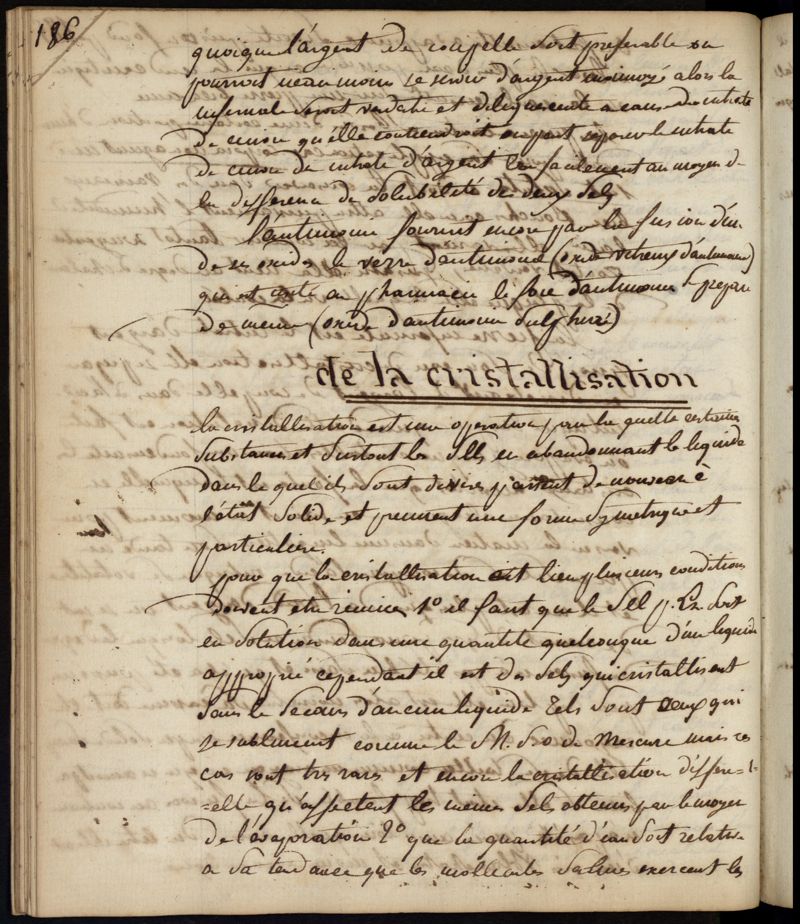 186
quoique l'argent de coupelle soit preferable on
pourroit neanmoins se servir d'argent monnoyé alors la
infernale seroit verdatre et deliquescente a cause du nitrate
de cuivre qu'elle contiendroit on peut separer le nitrate
de cuivre du nitrate d'argent facilement au moyen de
la difference de solubilité de deux sels
l'antimoine fournit encore par la fusion d'un
de ses oxides le verre d'antimoine (oxide vitreux d'antimoine)
qui est usité en pharmacie le foie d'antimoine se prepare
de meme (oxide d'antimoine sulphuré)
de la cristallisation
la cristallisation est une operation par la quelle certaines
substances et surtout les sells en abandonnant le liquide
dans le quel ils sont divisés passent de nouveau à
l'état solide et prennent une forme symetrique et
particuliere.
pour que la cristallisation ait lieu plusieurs conditions
doivent etre reunies 1º il faut que le sell p. Ex soit
en solution dans une quantité quelconque d'un liquide
approprié cependant il est des sels qui cristallisent
sans le secours d'aucun liquide tels sont ceux qui
se subliment comme le M. S o de Mercure mais ces
cas sont tres rares et encore la cristallisation differe-t-
=elle qu'affectent les memes sels obtenus par le moyen
de l'évaporation 2º que la quantité d'eau soit relative
a sa tendance que les molecules salines exercent les